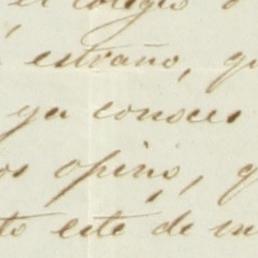 el colegio
estraño, qu
ya conoces
os opino, q
to este de